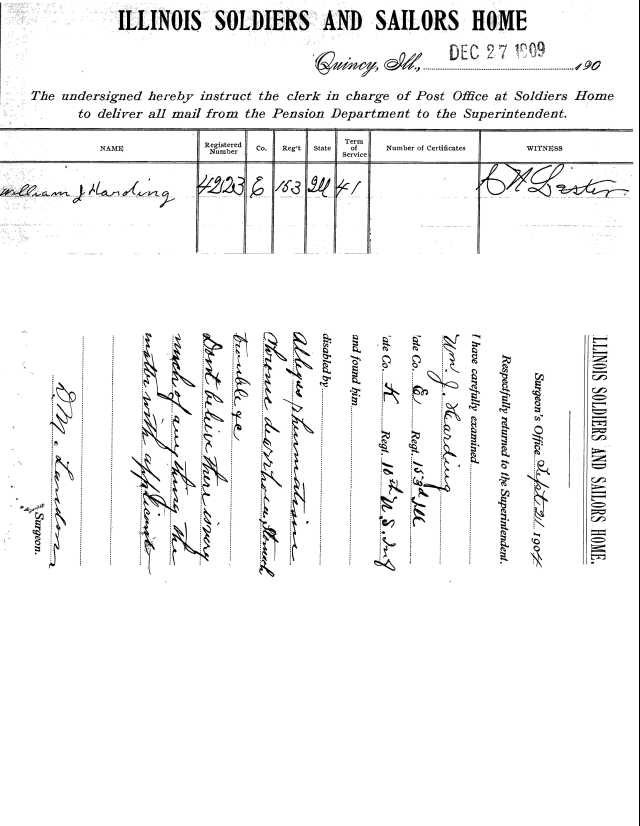 ILLINOIS SOLDIERS AND SAILORS HOME
Quincy, Ill., DEC 27 1909 190
The undersigned hereby instruct the clerk in charge of Post Office at Soldiers Home
to deliver all mail from the Pension Department to the Superintendent.
NAME Registered Number Co. Reg't State Term of Service Number of Certificates WITNESS
William J Harding 4223 E 153 Ill 41
ILLINOIS SOLDIERS AND SAILORS HOME.
Surgeon's Office Sept 21 1904
Respectfully returned to the Superintendent.
I have carefully examined
Wm. J. Harding
ate Co. E Regt. 153d Ill
ate Co. K Regt. 10th U.S. Inf
and found him
disabled by
Alleges rheumatism
Chronic diarrhoea, Stomach
trouble &c
Dont believe there is very
much of any thing the
matter with applicant
D. M. Landon
Surgeon.